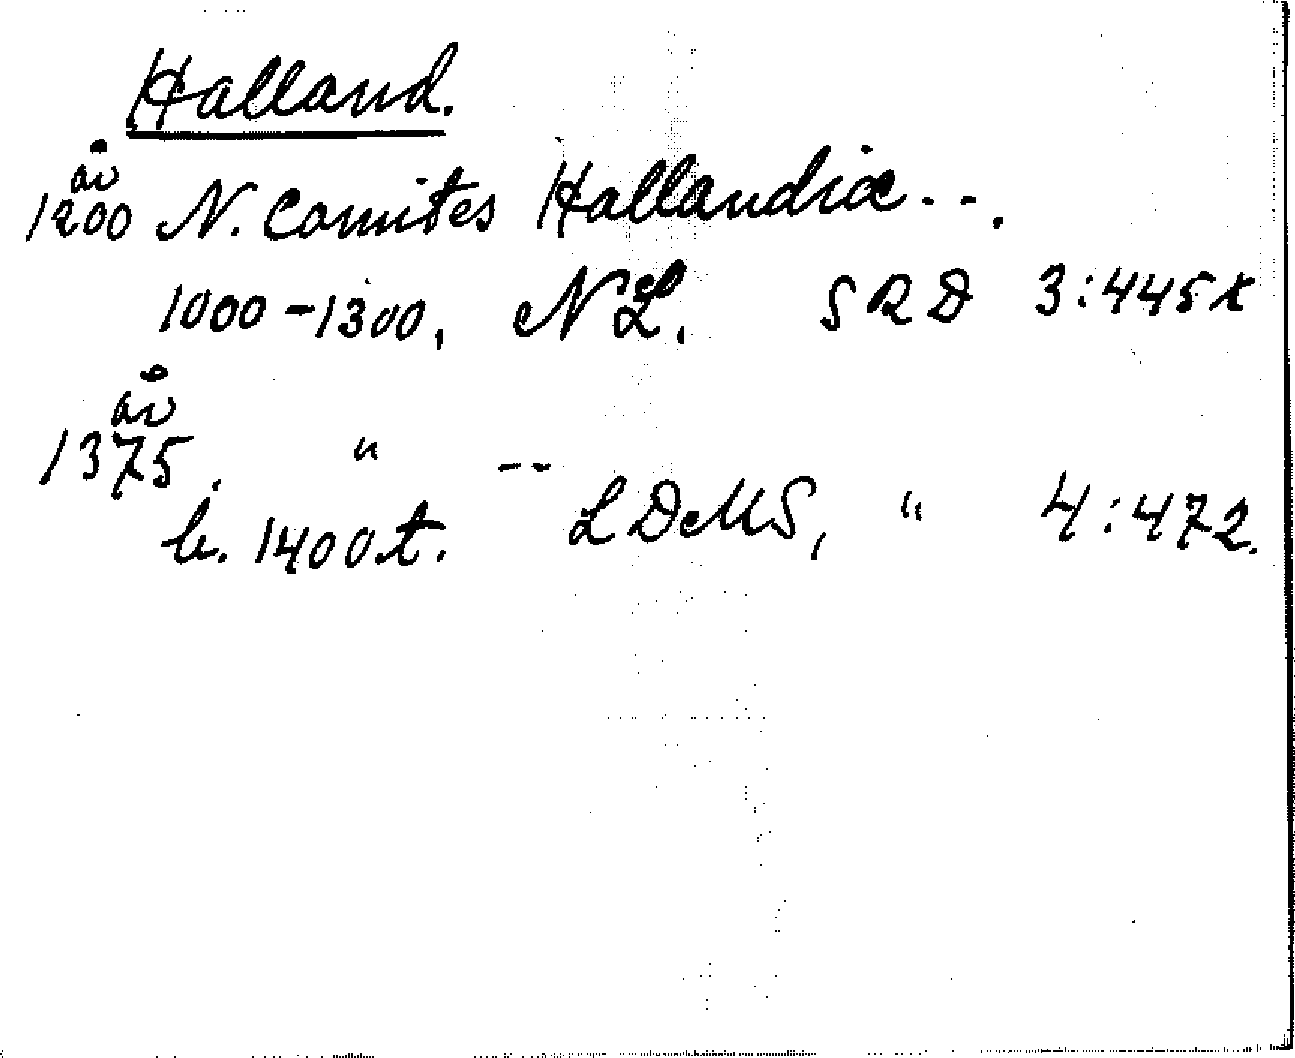 Halland.
år
1200 N. Comites Hallandiæ - - .
1000-1300, NL. SRD 3:445x
år
1375. " --
b. 1400t. LDMS, " 4:472.